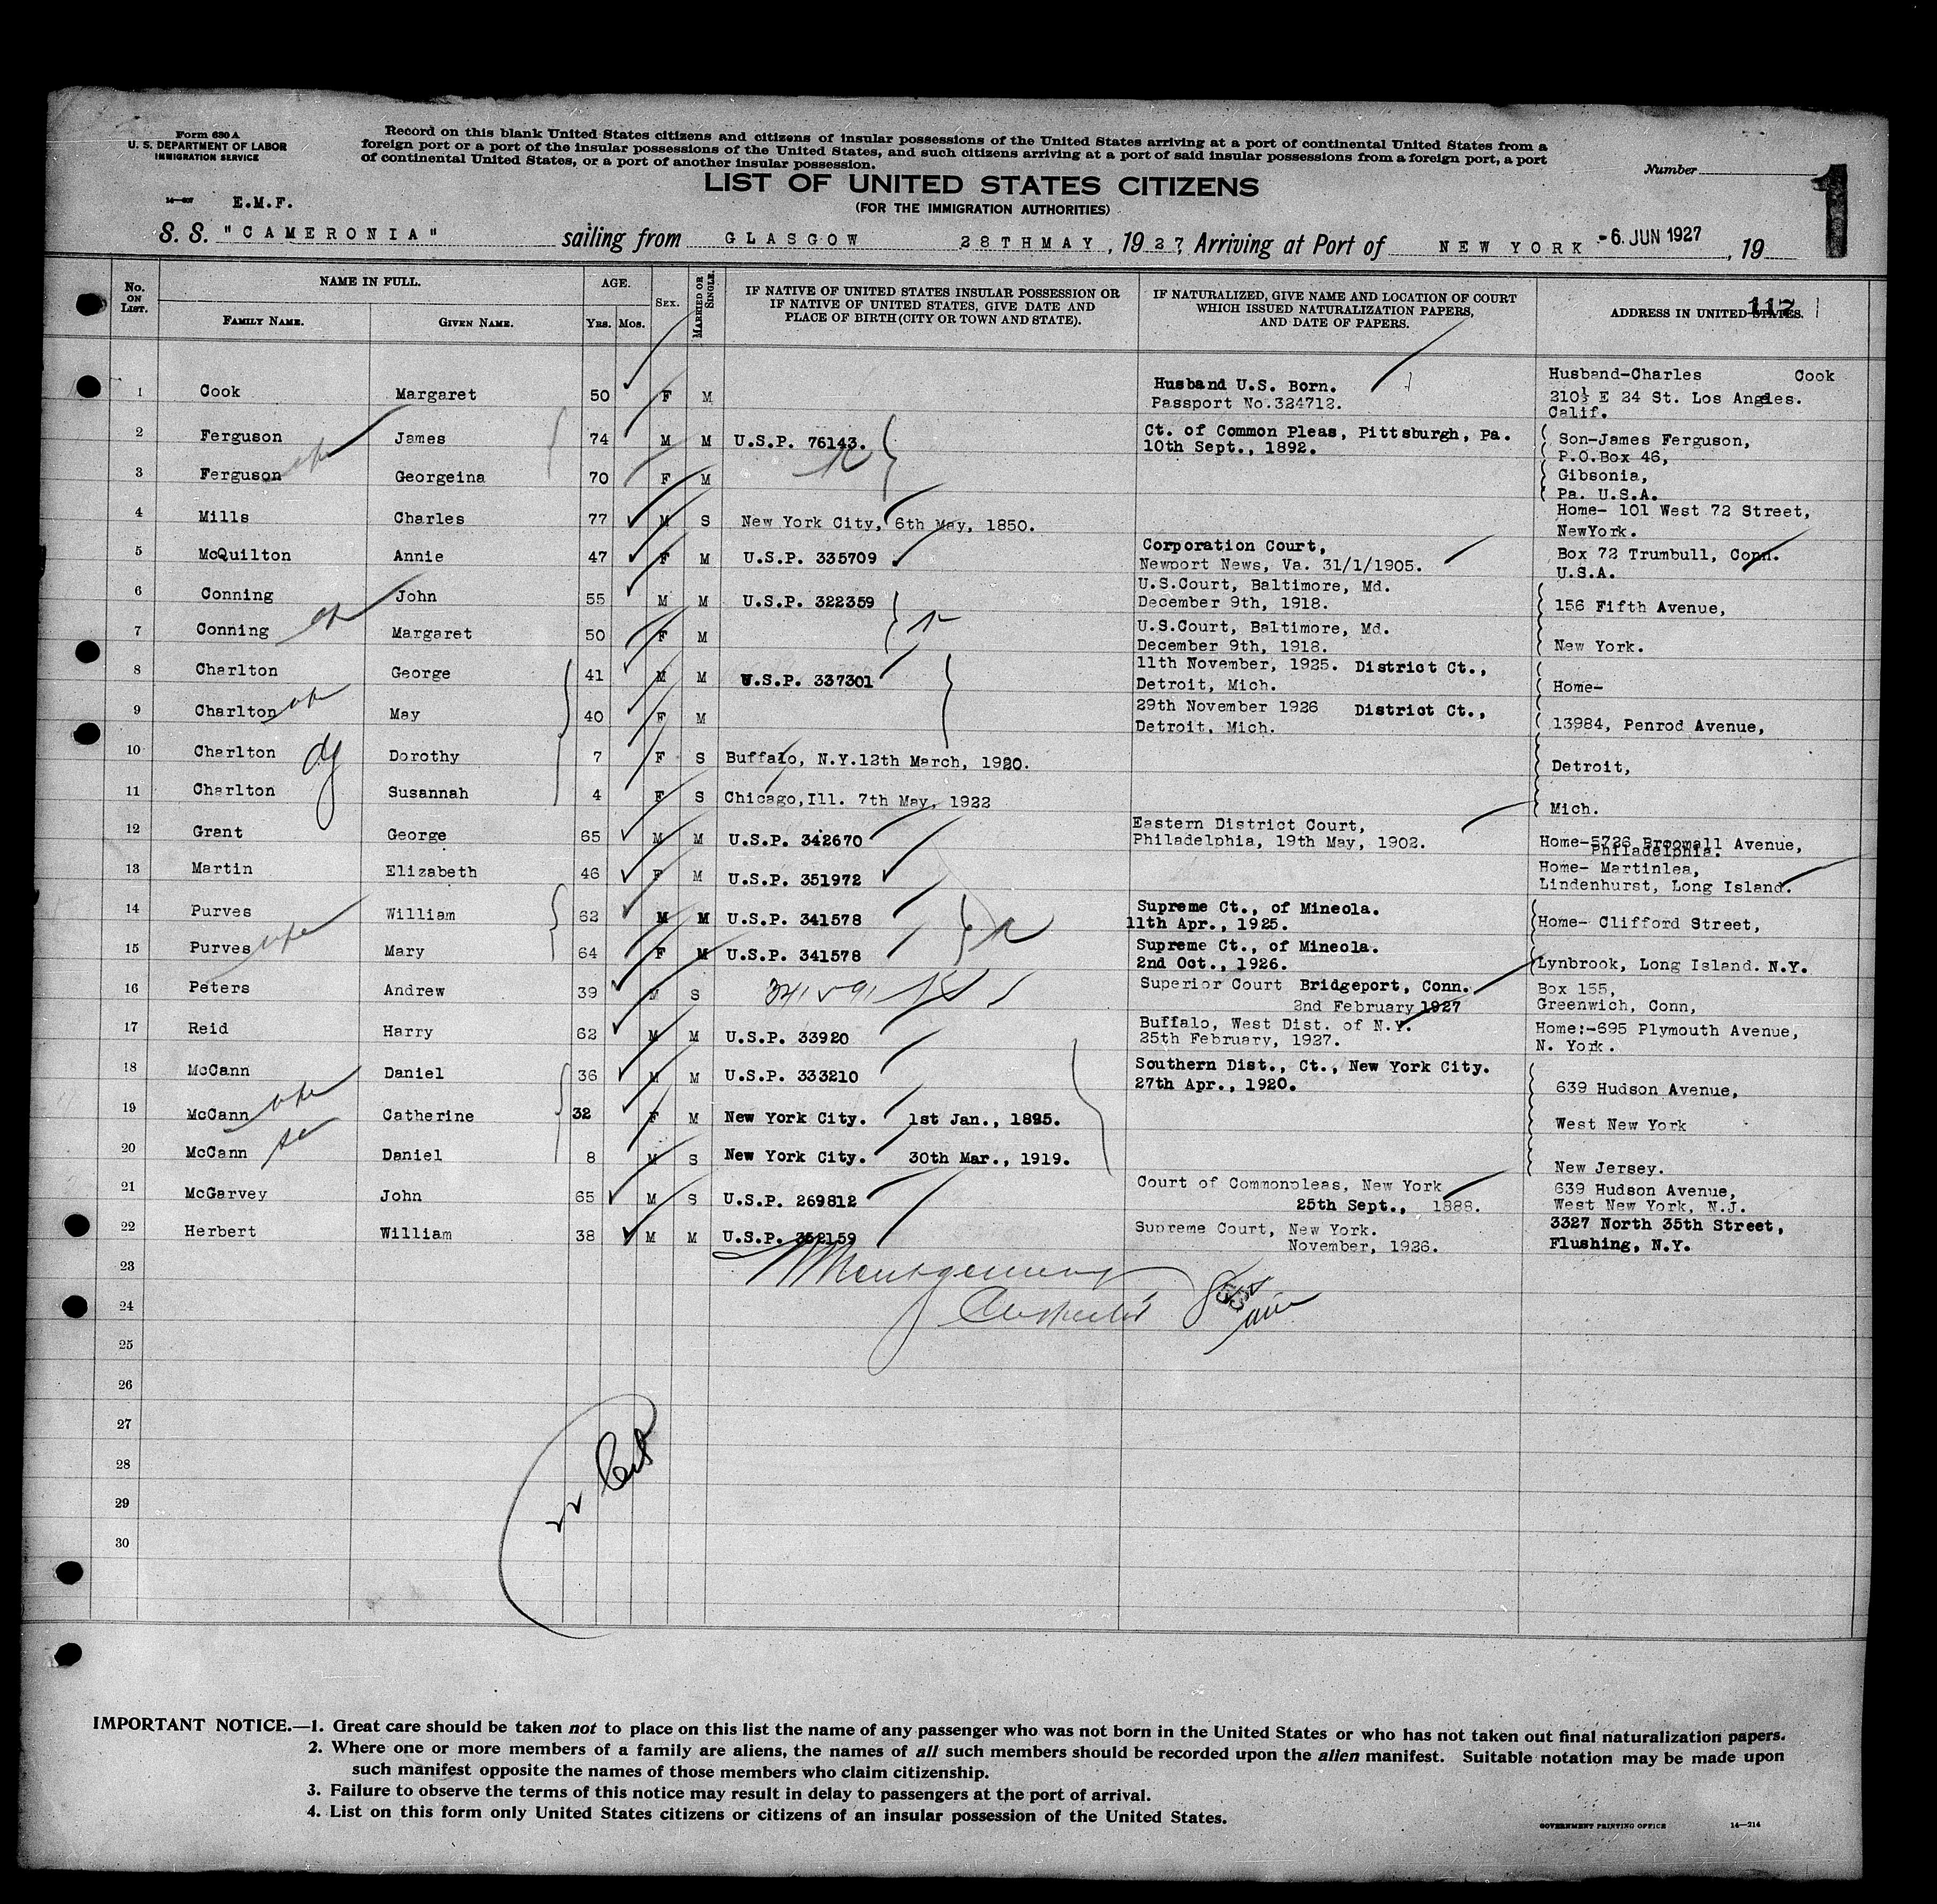 Form 630 A
U. S. DEPARTMENT OF LABOR
IMMIGRATION SERVICE
Record on this blank United States citizens and citizens of insular possessions of the United States arriving at a port of continental United States from a
foreign port or a port of the insular possessions of the United States, and such citizens arriving at a port of said insular possessions from a foreign port, a port
of continental United States, or a port of another insular possession.
Number
1
LIST OF UNITED STATES CITIZENS
(FOR THE IMMIGRATION AUTHORITIES)
E.M.F.
S. S. "CAMERONIA" sailing from GLASGOW 28THMAY, 1927, Arriving at Port of NEW YORK -6. JUN 1927, 19
No. ON LIST. NAME IN FULL. FAMILY NAME. GIVEN NAME. AGE. Yrs. Mos. SEX. MARRIED OR SINGLE. IF NATIVE OF UNITED STATES INSULAR POSSESSION OR IF NATIVE OF UNITED STATES, GIVE DATE AND PLACE OF BIRTH (CITY OR TOWN AND STATE). IF NATURALIZED, GIVE NAME AND LOCATION OF COURT WHICH ISSUED NATURALIZATION PAPERS, AND DATE OF PAPERS. ADDRESS IN UNITED STATES. 117
1 Cook Margaret 50 F M Husband U.S. Born. Passport No.324712. Husband-Charles Cook 210½ E 24 St. Los Angles. Calif.
2 Ferguson James 74 M M U.S.P. 76143. Ct. of Common Pleas, Pittsburgh, Pa. 10th Sept., 1892. Son-James Ferguson, P.O.Box 46,
3 Ferguson Georgeina 70 F M Gibsonia, Pa. U.S.A.
4 Mills Charles 77 M S New York City, 6th May, 1850. Home- 101 West 72 Street, NewYork.
5 McQuilton Annie 47 F M U.S.P. 335709 Corporation Court, Newport News, Va. 31/1/1905. Box 72 Trumbull, Conn. U.S.A.
6 Conning John 55 M M U.S.P. 322359 U.S.Court, Baltimore, Md. December 9th, 1918. 156 Fifth Avenue,
7 Conning Margaret 50 F M U.S.Court, Baltimore, Md. December 9th, 1918. New York.
8 Charlton George 41 M M U.S.P. 337301 11th November, 1925. District Ct., Detroit, Mich. Home-
9 Charlton May 40 F M 29th November 1926 District Ct., Detroit, Mich. 13984, Penrod Avenue,
10 Charlton Dorothy 7 F S Buffalo, N.Y.12th March, 1920. Detroit,
11 Charlton Susannah 4 F S Chicago,Ill. 7th May, 1922 Mich.
12 Grant George 65 M M U.S.P. 342670 Eastern District Court, Philadelphia, 19th May, 1902. Home-5726 Broomall Avenue, Philadelphia.
13 Martin Elizabeth 46 F M U.S.P. 351972 Home- Martinlea, Lindenhurst, Long Island.
14 Purves William 62 M M U.S.P. 341578 Supreme Ct., of Mineola. 11th Apr., 1925. Home- Clifford Street,
15 Purves Mary 64 F M U.S.P. 341578 Supreme Ct., of Mineola. 2nd Oct., 1926. Lynbrook, Long Island. N.Y.
16 Peters Andrew 39 M S Superior Court Bridgeport, Conn. 2nd February 1927 Box 155, Greenwich, Conn,
17 Reid Harry 62 M M U.S.P. 33920 Buffalo, West Dist. of N.Y. 25th February, 1927. Home:-695 Plymouth Avenue, N. York.
18 McCann Daniel 36 M M U.S.P. 333210 Southern Dist., Ct., New York City. 27th Apr., 1920. 639 Hudson Avenue,
19 McCann Catherine 32 F M New York City. 1st Jan., 1895. West New York
20 McCann Daniel 8 M S New York City. 30th Mar., 1919. New Jersey.
21 McGarvey John 65 M S U.S.P. 269812 Court of Commonpleas, New York 25th Sept., 1888. 639 Hudson Avenue, West New York, N.J.
22 Herbert William 38 M M U.S.P. 352159 Supreme Court, New York. November, 1926. 3327 North 35th Street, Flushing, N.Y.
23 Montgomery
24
25
26
27
28
29
30
IMPORTANT NOTICE.—1. Great care should be taken not to place on this list the name of any passenger who was not born in the United States or who has not taken out final naturalization papers.
2. Where one or more members of a family are aliens, the names of all such members should be recorded upon the alien manifest. Suitable notation may be made upon
such manifest opposite the names of those members who claim citizenship.
3. Failure to observe the terms of this notice may result in delay to passengers at the port of arrival.
4. List on this form only United States citizens or citizens of an insular possession of the United States.
GOVERNMENT PRINTING OFFICE 14—214